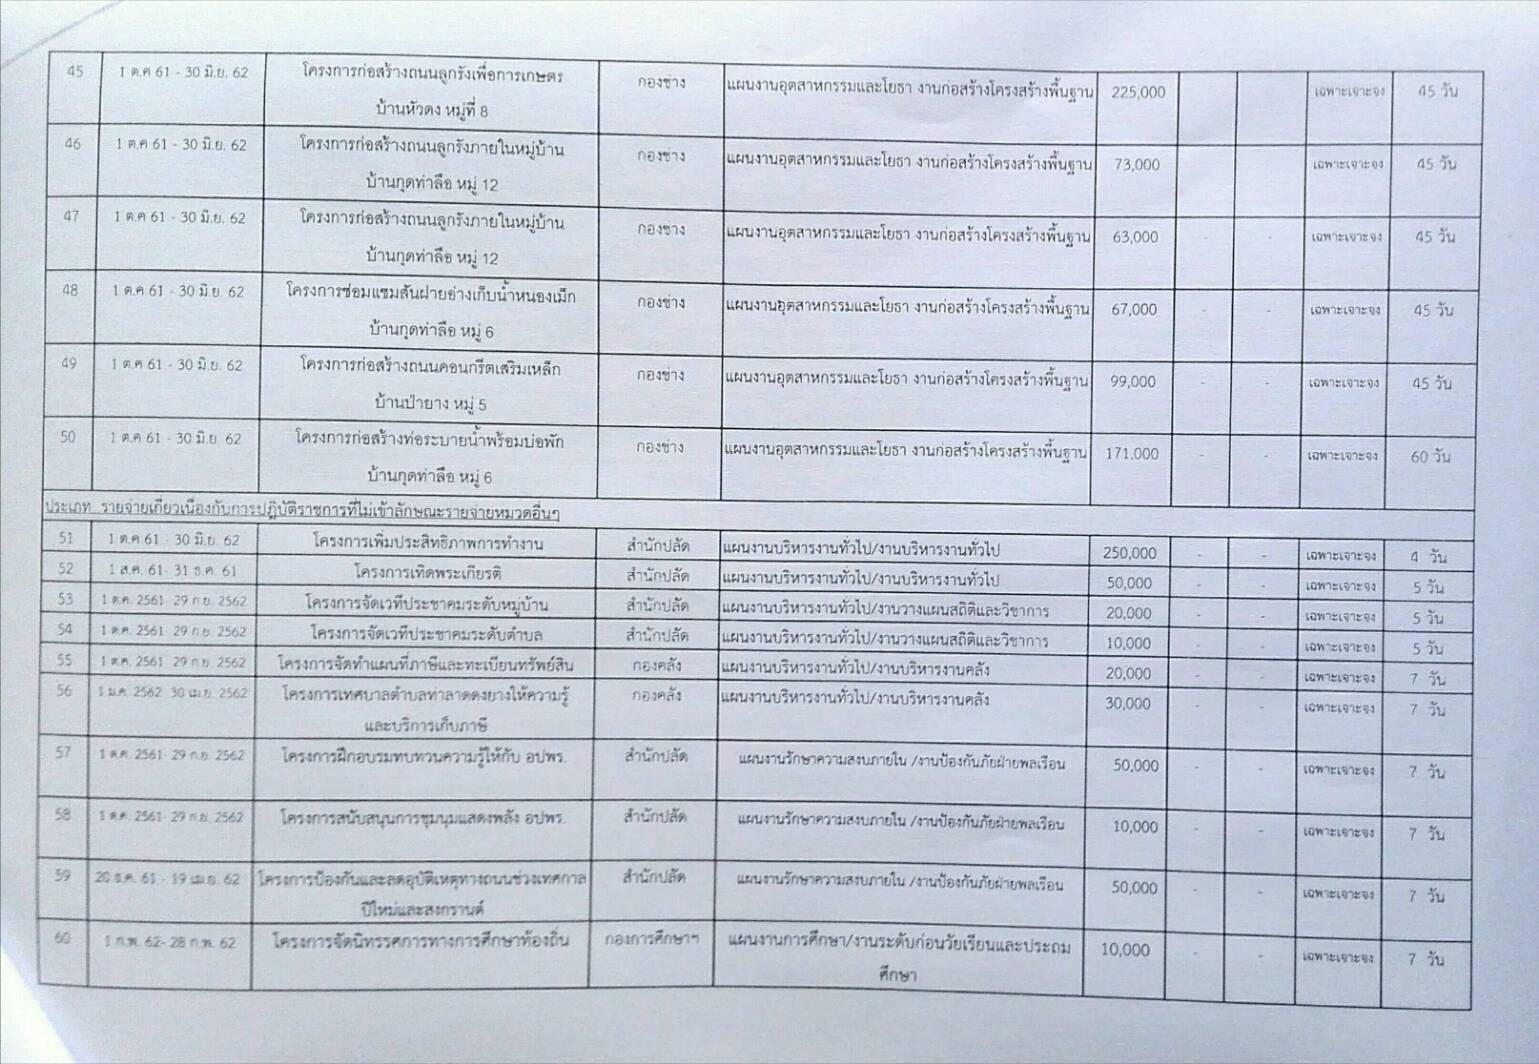 45 1 ต.ค 61 - 30 มิ.ย. 62 โครงการก่อสร้างถนนลูกรังเพื่อการเกษตร กองช่าง แผนงานอุตสาหกรรมและโยธา งานก่อสร้างโครงสร้างพื้นฐาน 225,000 เฉพาะเจาะจง 45 วัน
บ้านหัวดง หมู่ที่ 8
46 1 ต.ค 61 - 30 มิ.ย. 62 โครงการก่อสร้างถนนลูกรังภายในหมู่บ้าน กองช่าง แผนงานอุตสาหกรรมและโยธา งานก่อสร้างโครงสร้างพื้นฐาน 73,000 เฉพาะเจาะจง 45 วัน
บ้านกุดท่าลือ หมู่ 12
47 1 ต.ค 61 - 30 มิ.ย. 62 โครงการก่อสร้างถนนลูกรังภายในหมู่บ้าน กองช่าง แผนงานอุตสาหกรรมและโยธา งานก่อสร้างโครงสร้างพื้นฐาน 63,000 - - เฉพาะเจาะจง 45 วัน
บ้านกุดท่าลือ หมู่ 12
48 1 ต.ค 61 - 30 มิ.ย. 62 โครงการซ่อมแซมสันฝายอ่างเก็บน้ำหนองเม็ก กองช่าง แผนงานอุตสาหกรรมและโยธา งานก่อสร้างโครงสร้างพื้นฐาน 67,000 - - เฉพาะเจาะจง 45 วัน
บ้านกุดท่าลือ หมู่ 6
49 1 ต.ค 61 - 30 มิ.ย. 62 โครงการก่อสร้างถนนคอนกรีตเสริมเหล็ก กองช่าง แผนงานอุตสาหกรรมและโยธา งานก่อสร้างโครงสร้างพื้นฐาน 99,000 - - เฉพาะเจาะจง 45 วัน
บ้านป่ายาง หมู่ 5
50 1 ต.ค 61 - 30 มิ.ย. 62 โครงการก่อสร้างท่อระบายน้ำพร้อมบ่อพัก กองช่าง แผนงานอุตสาหกรรมและโยธา งานก่อสร้างโครงสร้างพื้นฐาน 171,000 - - เฉพาะเจาะจง 60 วัน
บ้านกุดท่าลือ หมู่ 6
ประเภท รายจ่ายเกี่ยวเนื่องกับการปฏิบัติราชการที่ไม่เข้าลักษณะรายจ่ายหมวดอื่นๆ
51 1 ต.ค 61 - 30 มิ.ย. 62 โครงการเพิ่มประสิทธิภาพการทำงาน สำนักปลัด แผนงานบริหารงานทั่วไป/งานบริหารงานทั่วไป 250,000 - - เฉพาะเจาะจง 4 วัน
52 1 ส.ค. 61- 31 ธ.ค. 61 โครงการเทิดพระเกียรติ สำนักปลัด แผนงานบริหารงานทั่วไป/งานบริหารงานทั่วไป 50,000 - - เฉพาะเจาะจง 5 วัน
53 1 ต.ค. 2561- 29 ก.ย. 2562 โครงการจัดเวทีประชาคมระดับหมู่บ้าน สำนักปลัด แผนงานบริหารงานทั่วไป/งานวางแผนสถิติและวิชาการ 20,000 - - เฉพาะเจาะจง 5 วัน
54 1 ต.ค. 2561 29 ก.ย. 2562 โครงการจัดเวทีประชาคมระดับตำบล สำนักปลัด แผนงานบริหารงานทั่วไป/งานวางแผนสถิติและวิชาการ 10,000 - - เฉพาะเจาะจง 5 วัน
55 1 ต.ค. 2561 29 ก.ย. 2562 โครงการจัดทำแผนที่ภาษีและทะเบียนทรัพย์สิน กองคลัง แผนงานบริหารงานทั่วไป/งานบริหารงานคลัง 20,000 - - เฉพาะเจาะจง 7 วัน
56 1 ม.ค. 2562 30 เม.ย. 2562 โครงการเทศบาลตำบลท่าลาดดงยางให้ความรู้ กองคลัง แผนงานบริหารงานทั่วไป/งานบริหารงานคลัง 30,000 - - เฉพาะเจาะจง 7 วัน
และบริการเก็บภาษี
57 1 ต.ค. 2561- 29 ก.ย. 2562 โครงการฝึกอบรมทบทวนความรู้ให้กับ อปพร. สำนักปลัด แผนงานรักษาความสงบภายใน /งานป้องกันภัยฝ่ายพลเรือน 50,000 - - เฉพาะเจาะจง 7 วัน
58 1 ต.ค. 2561- 29 ก.ย. 2562 โครงการสนับสนุนการชุมนุมแสดงพลัง อปพร. สำนักปลัด แผนงานรักษาความสงบภายใน /งานป้องกันภัยฝ่ายพลเรือน 10,000 - - เฉพาะเจาะจง 7 วัน
59 20 ธ.ค. 61 - 19 เม.ย. 62 โครงการป้องกันและลดอุบัติเหตุทางถนนช่วงเทศกาล สำนักปลัด แผนงานรักษาความสงบภายใน /งานป้องกันภัยฝ่ายพลเรือน 50,000 - - เฉพาะเจาะจง 7 วัน
ปีใหม่และสงกรานต์
60 1 ก.พ. 62- 28 ก.พ. 62 โครงการจัดนิทรรศการทางการศึกษาท้องถิ่น กองการศึกษาฯ แผนงานการศึกษา/งานระดับก่อนวัยเรียนและประถม 10,000 - - เฉพาะเจาะจง 7 วัน
ศึกษา